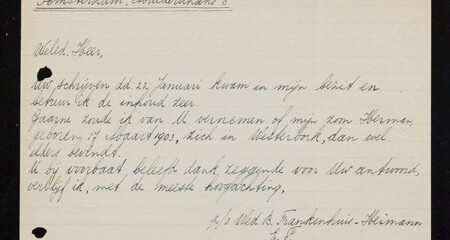 Amsterdam,
Weled. Heer,
Uw schrijven dd. 22 Januari kwam in mijn bezit en
betreur ik de inhoud zeer.
Gaarne zoude ik van U vernemen of mijn zoon Herman,
geboren 17 Maart 1903, zich in Westerbork, dan wel
elders bevindt.
U bij voorbaat beleefd dank zeggende voor Uw antwoord,
verblijf ik, met de meeste hoogachting,
p/o Wed. B. Frankenhuis-Heimann